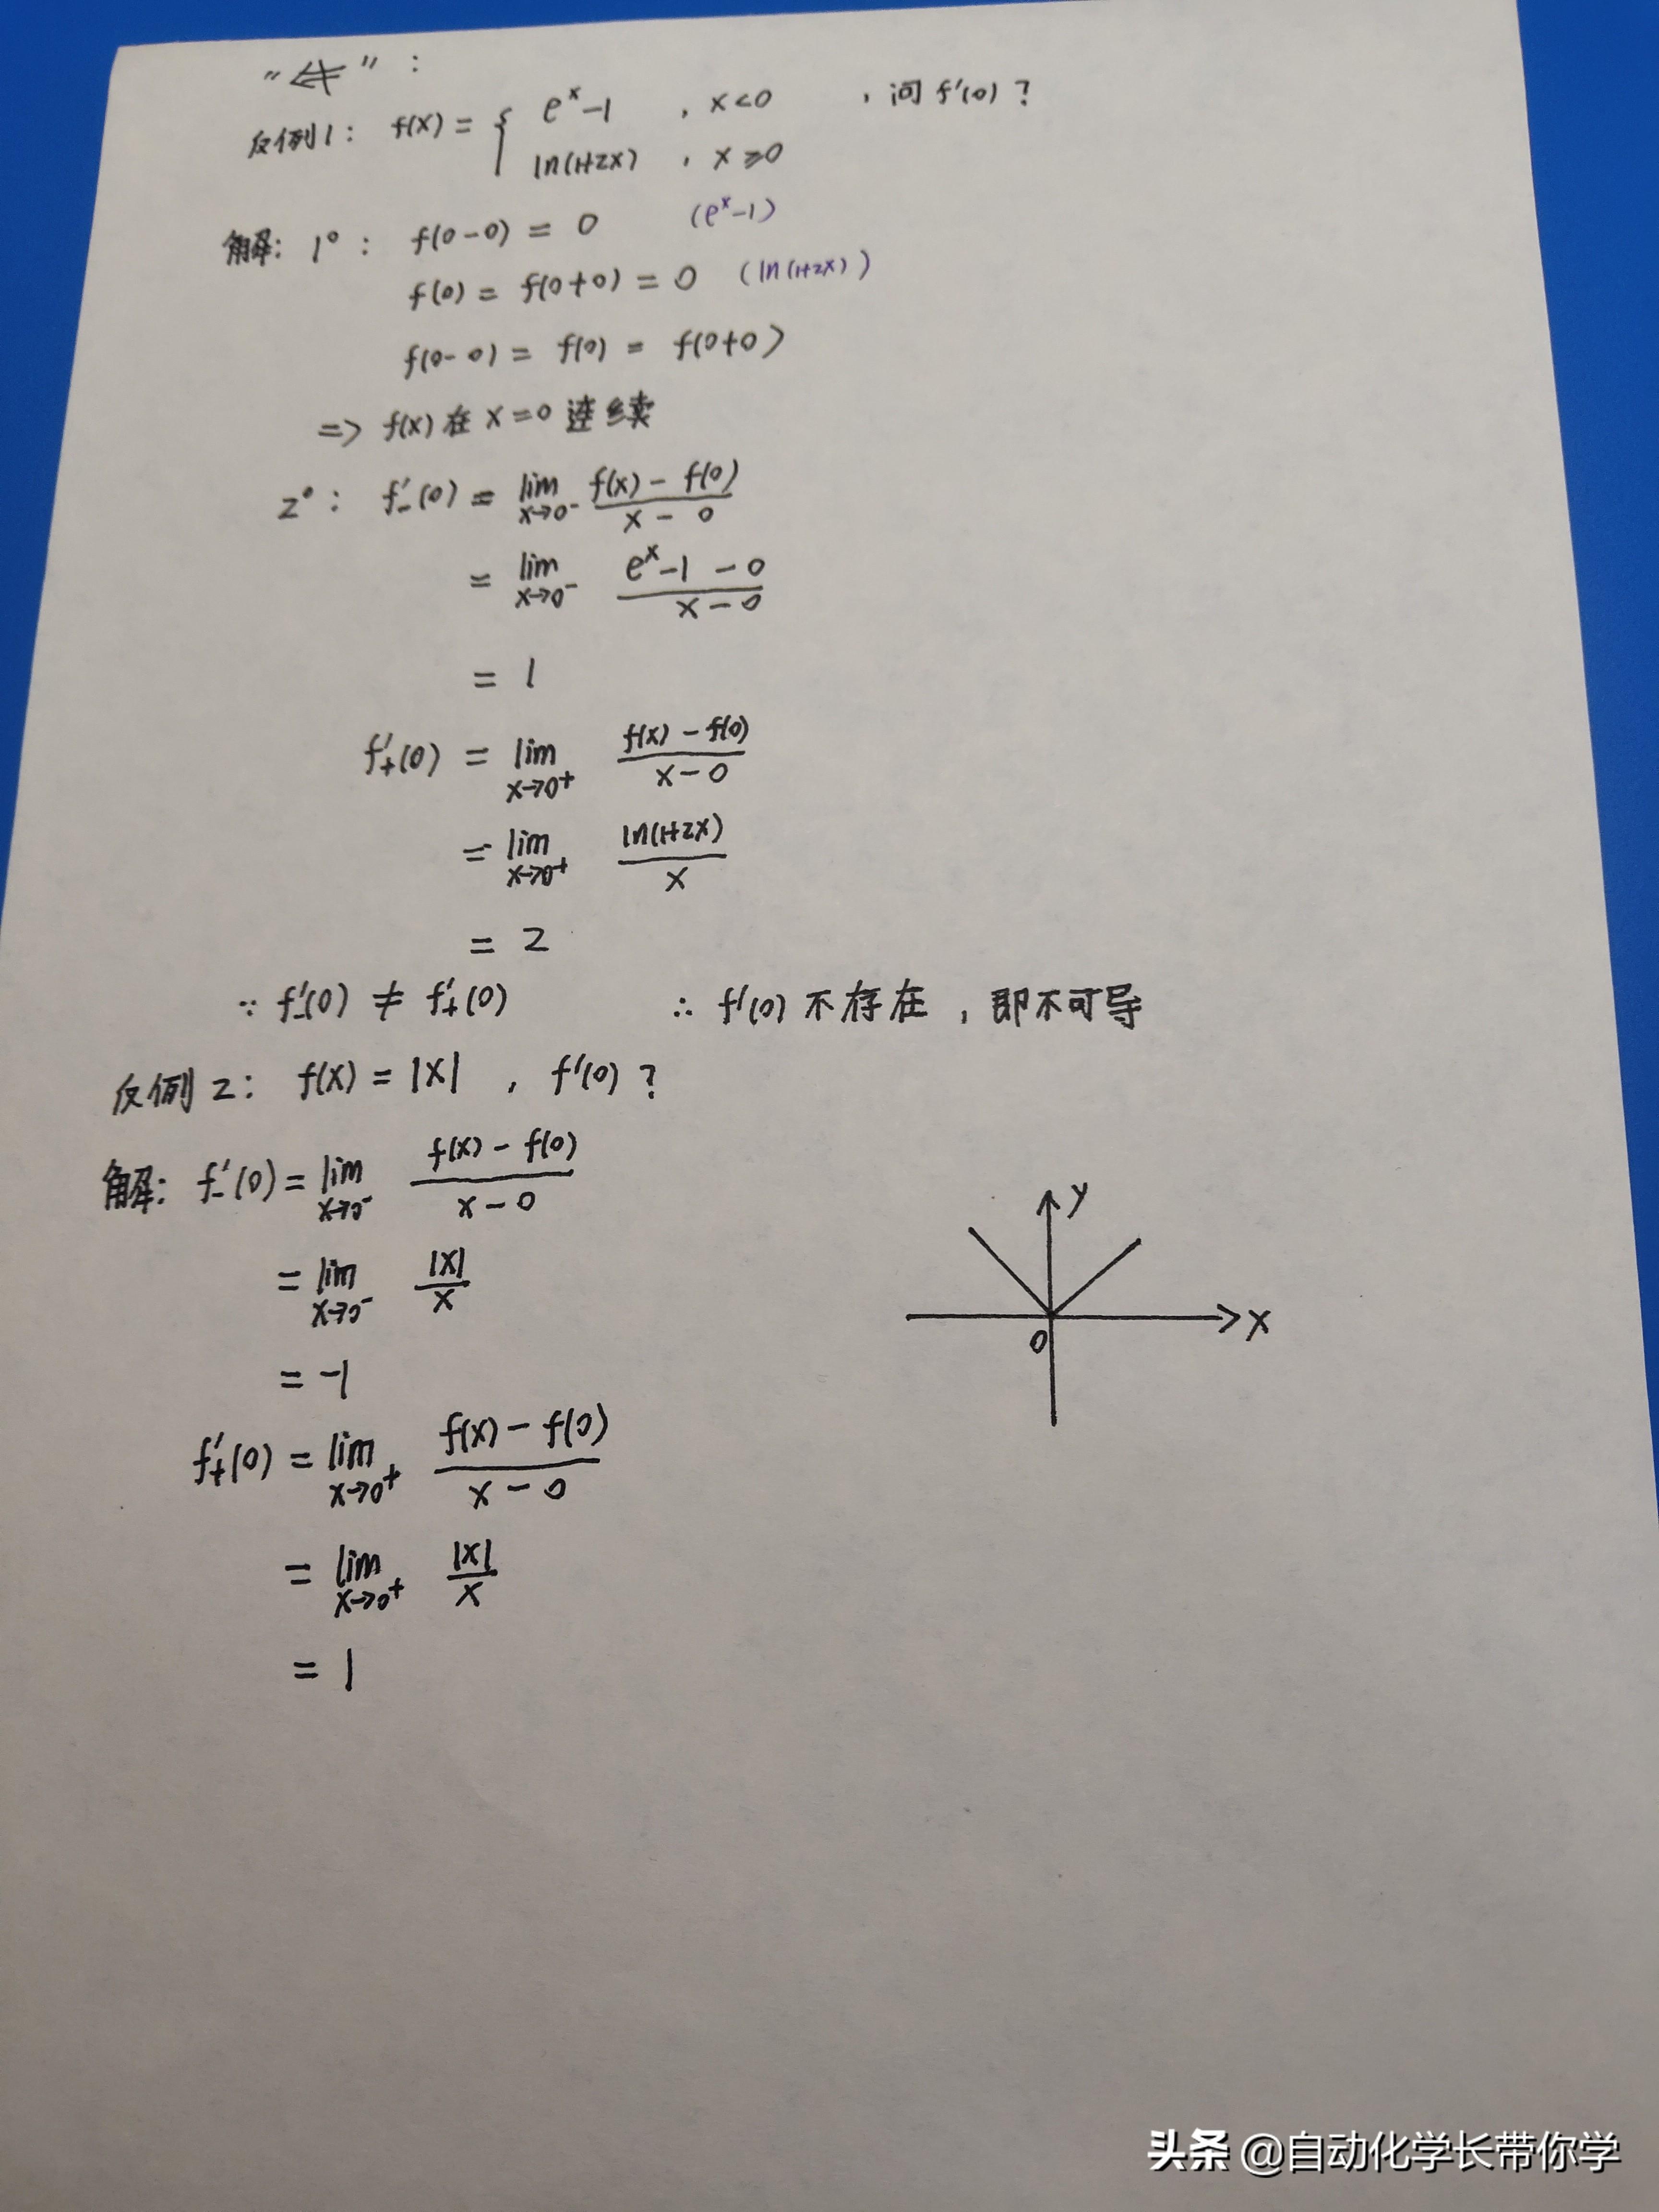 “⇍”：
反例1： f(x) = { e^x-1 , x<0 , 问 f'(0)？
ln(1+2x) , x≥0
解： 1°： f(0-0) = 0 (e^x-1)
f(0) = f(0+0) = 0 (ln(1+2x))
f(0-0) = f(0) = f(0+0)
=> f(x) 在 x=0 连续
2°： f'₋(0) = lim x→0⁻ (f(x) - f(0))/(x - 0)
= lim x→0⁻ (e^x-1 - 0)/(x-0)
= 1
f'₊(0) = lim x→0⁺ (f(x) - f(0))/(x-0)
= lim x→0⁺ ln(1+2x)/x
= 2
∵ f'₋(0) ≠ f'₊(0) ∴ f'(0) 不存在，即不可导
反例2： f(x) = |x| , f'(0)？
解： f'₋(0) = lim x→0⁻ (f(x) - f(0))/(x-0)
= lim x→0⁻ |x|/x
= -1
f'₊(0) = lim x→0⁺ (f(x) - f(0))/(x-0)
= lim x→0⁺ |x|/x
= 1
y
x
0
头条 @自动化学长带你学